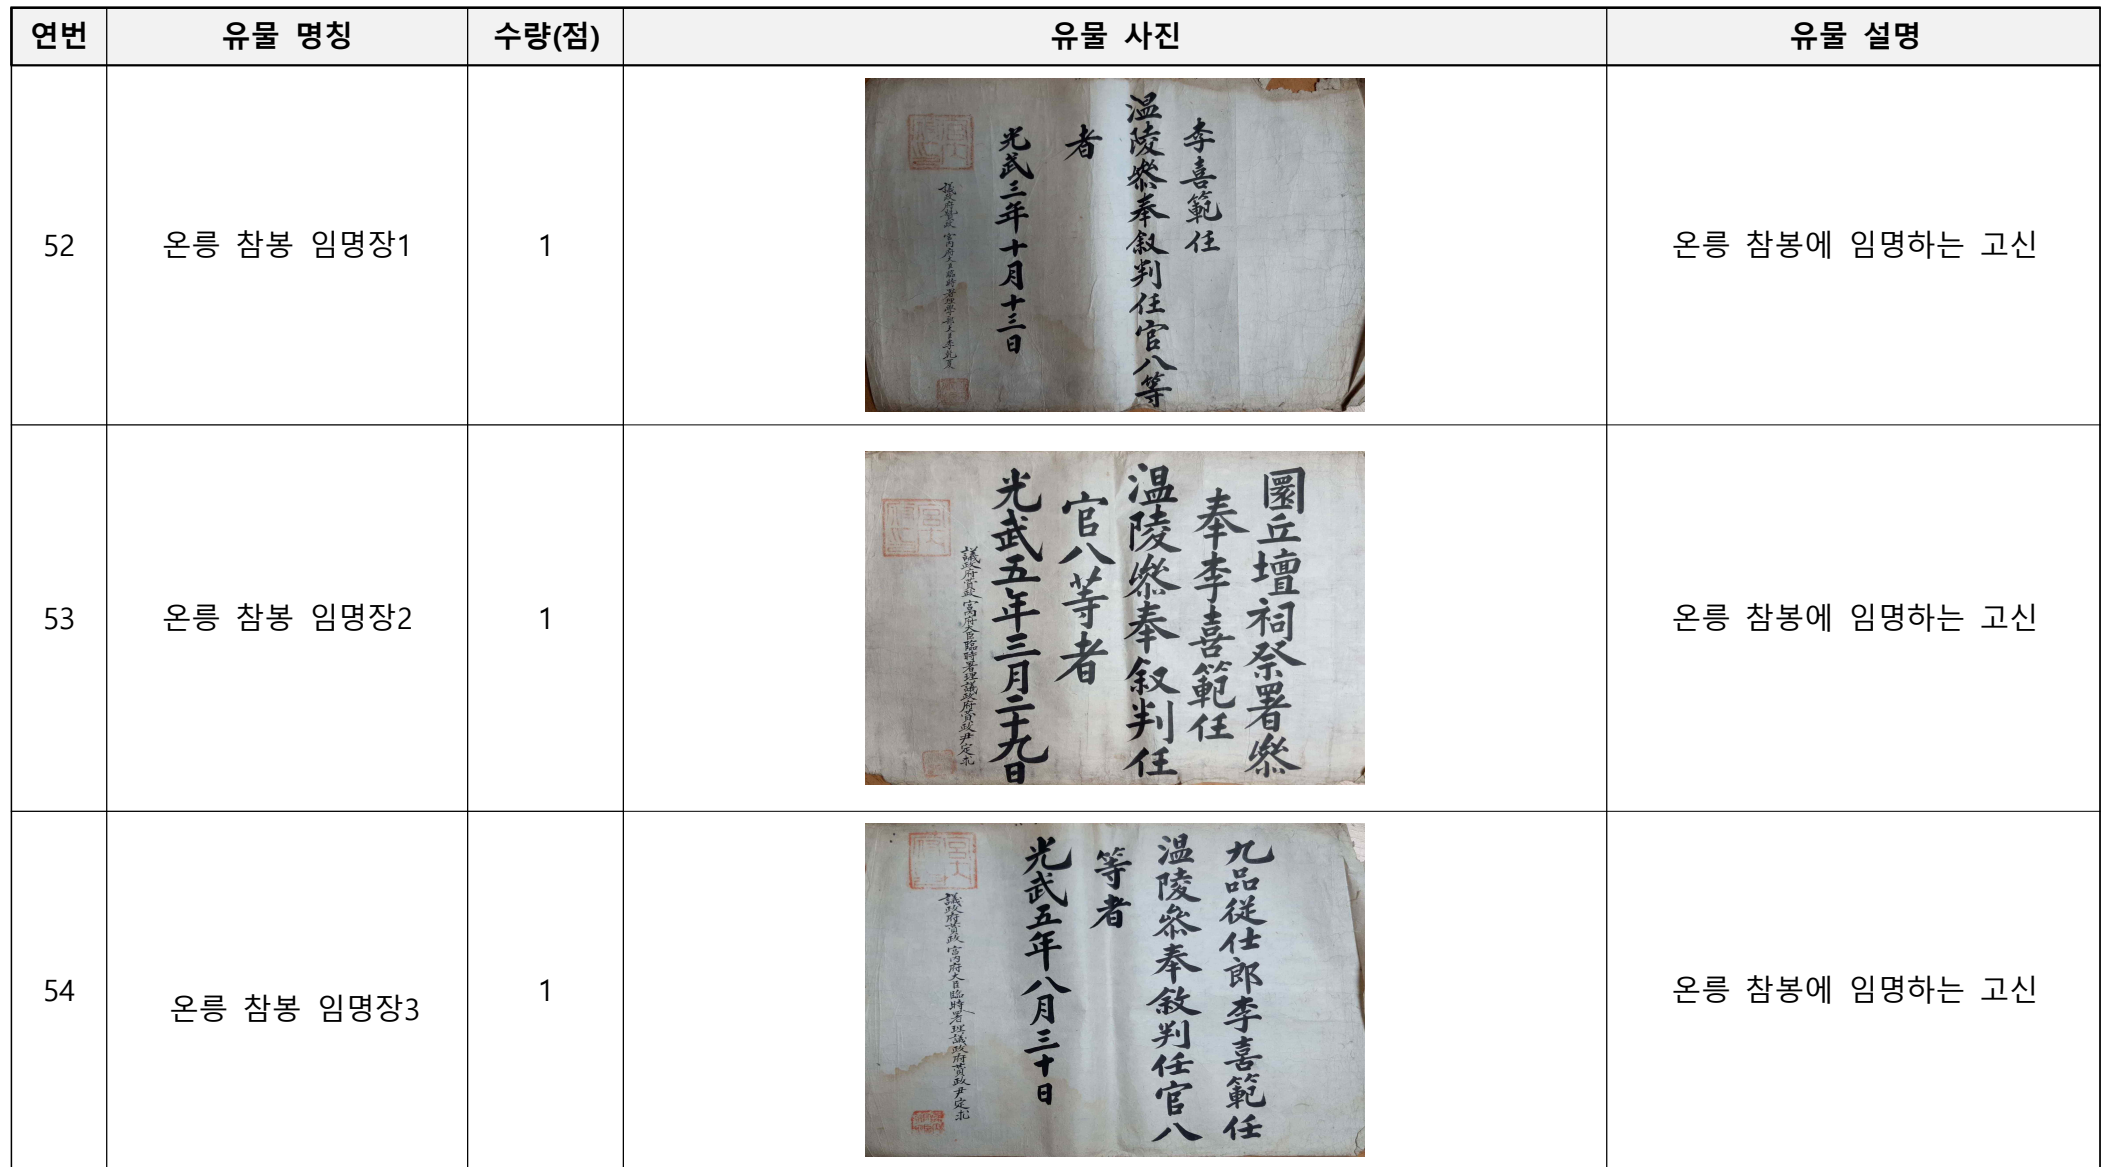 연번 유물 명칭 수량(점) 유물 사진 유물 설명
52 온릉 참봉 임명장1 1
李喜範任
温陵叅奉叙判任官八等
者
光武三年十月十三日
온릉 참봉에 임명하는 고신
53 온릉 참봉 임명장2 1
圜丘壇祠祭署叅
奉李喜範任
温陵叅奉叙判任
官八等者
光武五年三月二十九日
議政府賛政宮內府大臣臨時署理議政府賛政尹定求
온릉 참봉에 임명하는 고신
54 온릉 참봉 임명장3 1
九品從仕郎李喜範任
温陵叅奉敘判任官八
等者
光武五年八月三十日
議政府賛政宮內府大臣臨時署理議政府賛政尹定求
온릉 참봉에 임명하는 고신